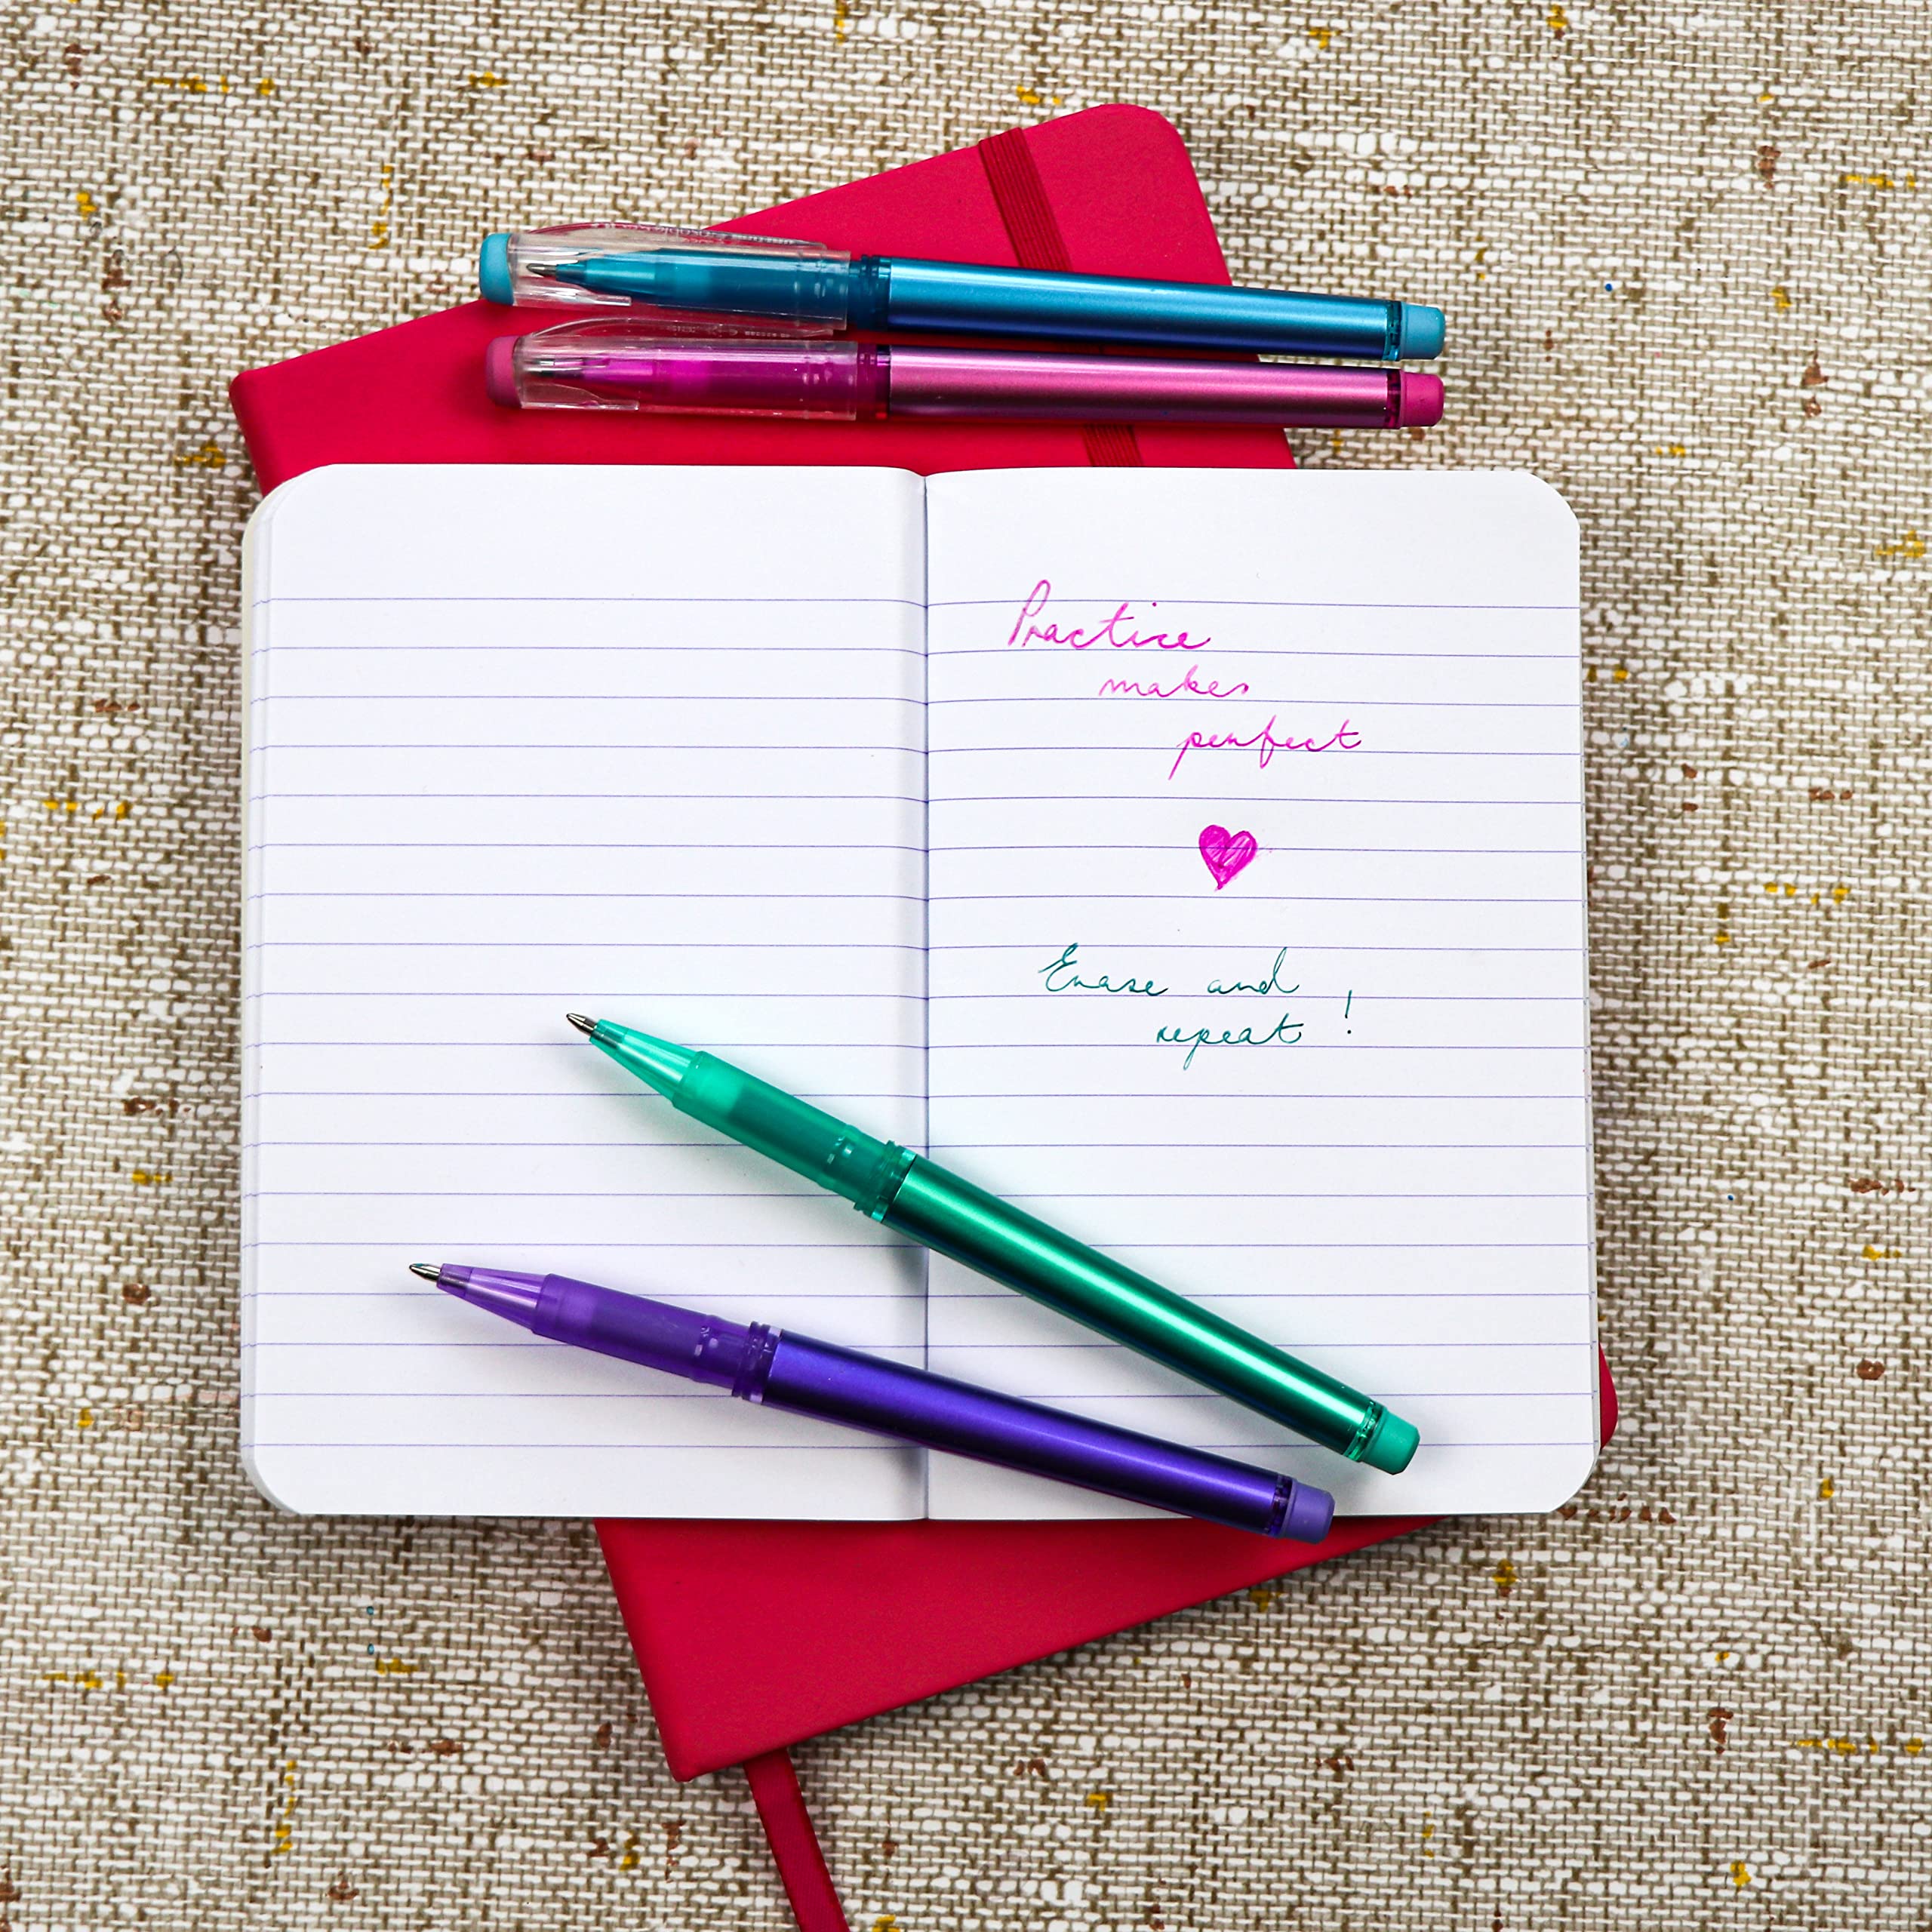 Practice
makes
perfect
Erase and
repeat !